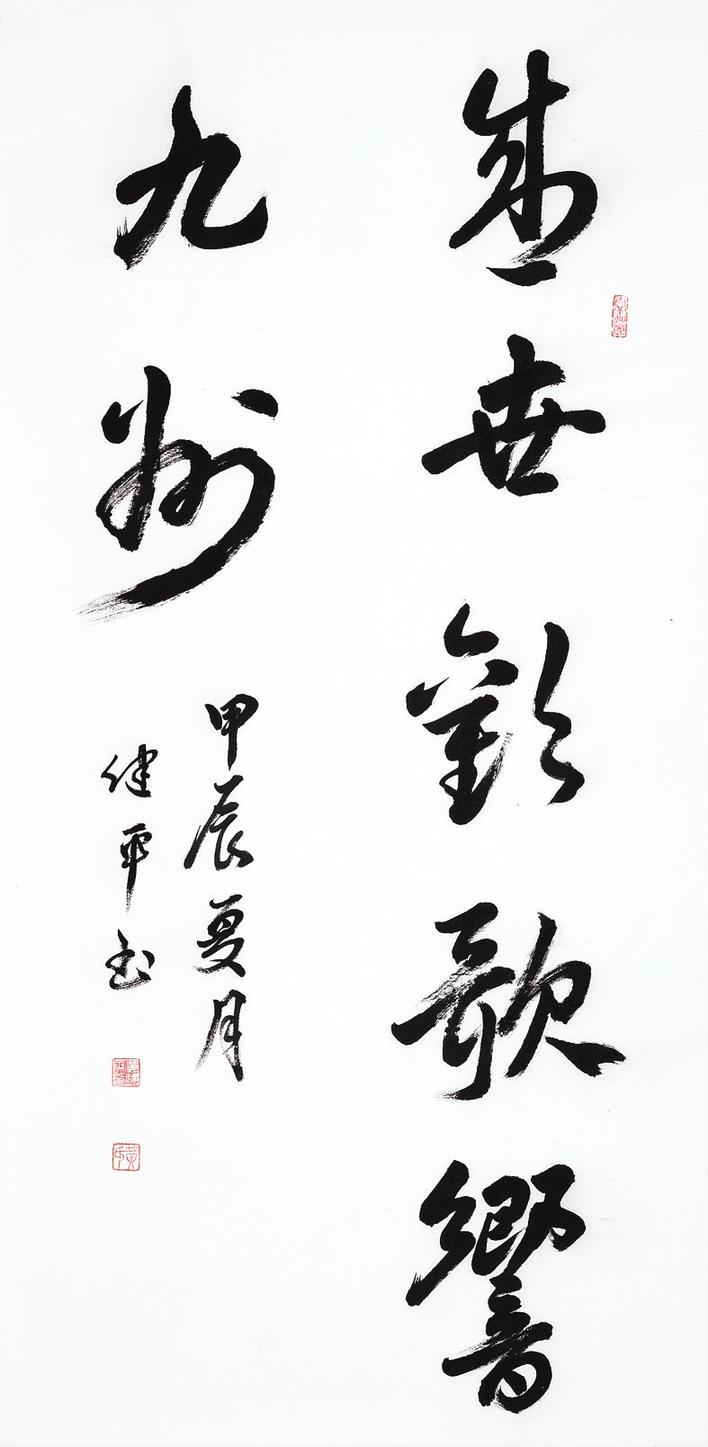 盛世歡歌響
九州
甲辰夏月
健平书